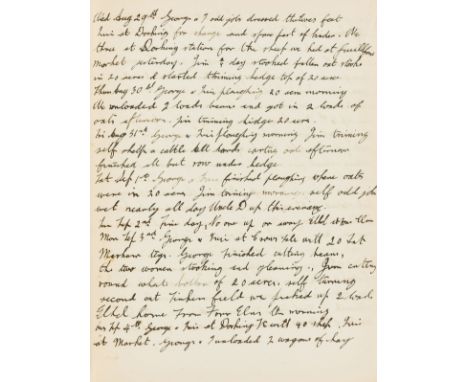 Wed Aug 29th George & I odd jobs dressed thelves feet
at Dorking for change and spare part of binder. We
three at Dorking station for the sheep we had at
Market yesterday. Jim ½ day stooked fallen out stocks
in 20 acres & started triming hedge top of 20 acre
Thurs Aug 30th. George & ploughing 20 acre morning
We unloaded 2 loads beans and got in 2 loads of
oats afternoon. Jim triming hedge 20 acre.
Fri Aug 31st George & ploughing morning Jim triming
self sheep & cattle all hands carting oats afternoon
finished all but row under hedge.
Sat Sep 1st. George & finished ploughing where oats
were in 20 acre. Jim triming morning. self odd jobs
wet nearly all day Uncle D up this evening.
Sun Sep 2nd Fine day, No one up or away
Mon Sep 3rd George & at sale with 20 fat
George finished cutting beans,
the two women stooking and gleaning, Jim cutting
round bottom of 20 acres. self turning
second cut field we picked up 2 loads
Ethel home From Four Elms morning
Sep 4th George & at Dorking with 40 sheep.
at Market. George & I unloaded 2 wagons of hay